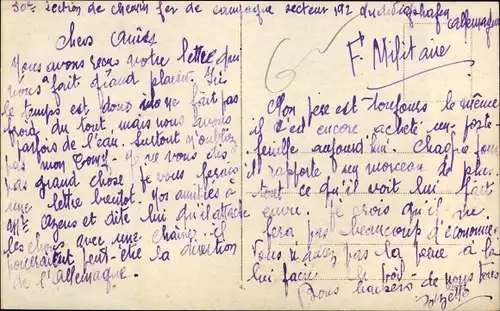 50e Section de chemin fer de campagne secteur 192 Ludwigshafen Allemagne
Chers Amies
Nous avons reçus votre lettre qui
nous a fait grand plaisir. Ici
le temps est doux il ne fait pas
froid du tout, mais nous avons
parfois de l'eau. Surtout n'oubliez
pas mon Je ne vous dis
pas grand chose je vous ferais
une lettre bientot. Nos amitiés à
Mr et dite lui qu'il attache
les avec une chaine il
pourraient peut-être la direction
de l'Allemagne.
Fse Militaire
Mon père est toujours le même
il s'est encore acheté un porte
feuille aujourd'hui. Chaque jour
il rapporte un morceau de plus
tout ce qu'il voit lui fait
envie. Je crois qu'il ne
fera pas beaucoup d'économie.
Vous n'avez pas la peine à la
lui faire le
Bons baisers de nous tous